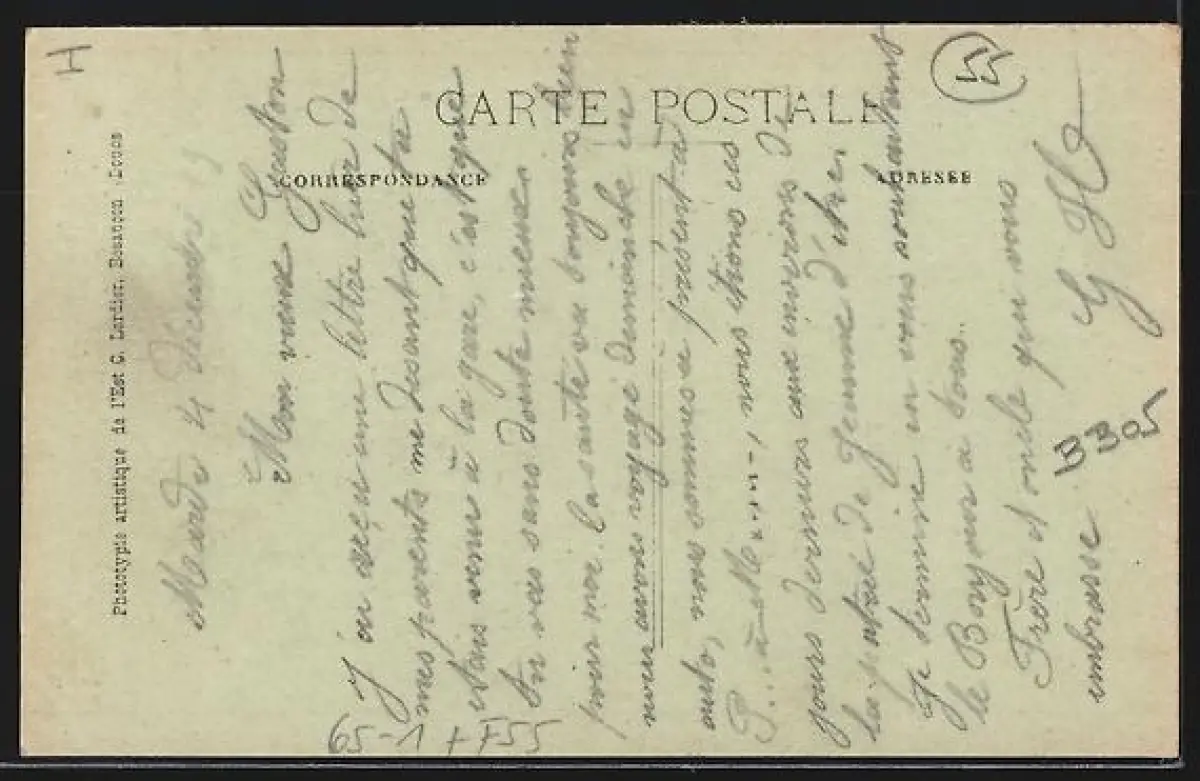 CARTE POSTALE
CORRESPONDANCE
ADRESSE
Phototypie artistique de l'Est C. Lardier, Besançon (Doubs
H
55
Mardi 4 décembre
Mon vieux Gaston
J'ai reçu une lettre hier de
mes parents me disant que tu
étais venu à la gare, c'est que
tu vas sans doute mieux
pour moi la santé va toujours bien
nous avons voyagé dimanche en
auto, nous sommes à présent à
P... à M......, nous étions ces
jours derniers aux environs de
la patrie de Jeanne d'Arc.
Je termine en vous souhaitant
le Bonjour à tous.
Frère et oncle qui vous
embrasse
G H
3305
65-1 ++ 55